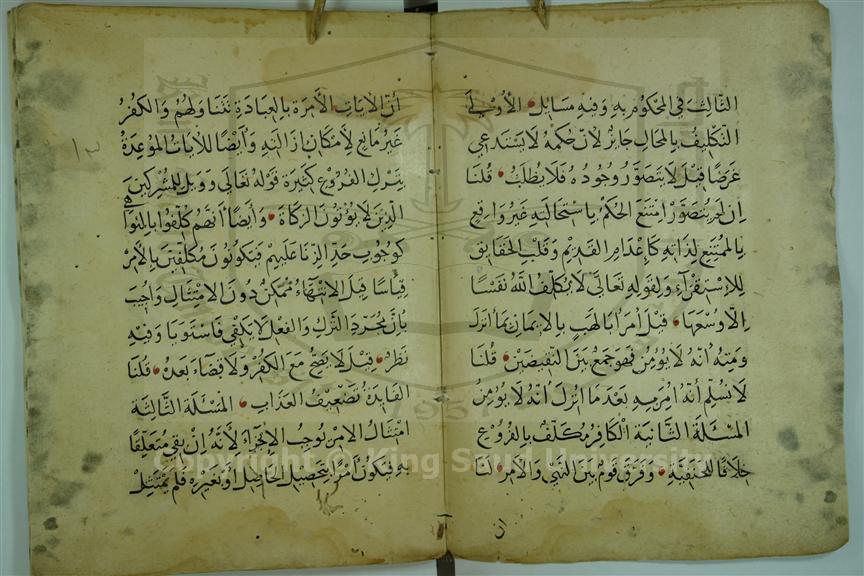 الثالث في المحكوم به وفيه مسائل الأولى
التكليف بالمحال جايز لان حكمه لا يستدعي
غرضا قيل لا يتصور وجوده فلا يطلب قلنا
ان لم يتصور امتنع الحكم باستحالته غير واقع
بالممتنع لذاته كاعدام القديم وقلب الحقايق
للاستقراء ولقوله تعالى لا يكلف الله نفسا
الا وسعها قيل امر ابا لهب بالايمان بما انزل
ومنه انه لا يؤمن فهو جمع بين النقيضين قلنا
لا نسلم انه امر به بعد ما انزل انه لا يؤمن
المسئلة الثانية الكافر مكلف بالفروع
خلافا للحنفية وفرق قوم بين النهي والامر لنا
ان
ان الايات الآمرة بالعبادة تتناولهم والكفر
غير مانع لامكان ازالته وايضا للايات الموعدة
بترك الفروع كثيرة قوله تعالى وويل للمشركين
الذين لا يؤتون الزكاة وايضا انهم كلفوا بالنواهي
كوجوب حد الزنا عليهم فيكونون مكلفين بالامر
قياسا قيل الانتهاء ممكن دون الامتثال واجيب
بان مجرد الترك والفعل لا يكفي فاستويا وفيه
نظر قيل لا يصح مع الكفر ولا قضاء بعده قلنا
الفايدة تضعيف العذاب المسئلة الثالثة
امتثال الامر يوجب الاجزاء لانه ان بقي متعلقا
به فيكون امرا بتحصيل الحاصل او بغيره فلم يمتثل
١٣
Copyright © King Saud University
1957